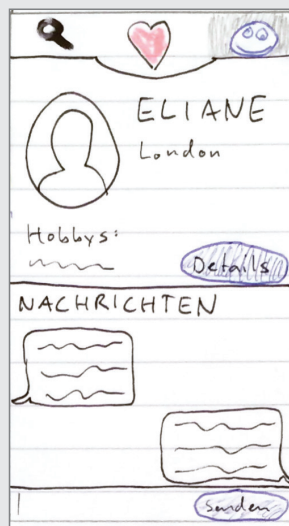 ELIANE
London
Hobbys:
Details
NACHRICHTEN
senden